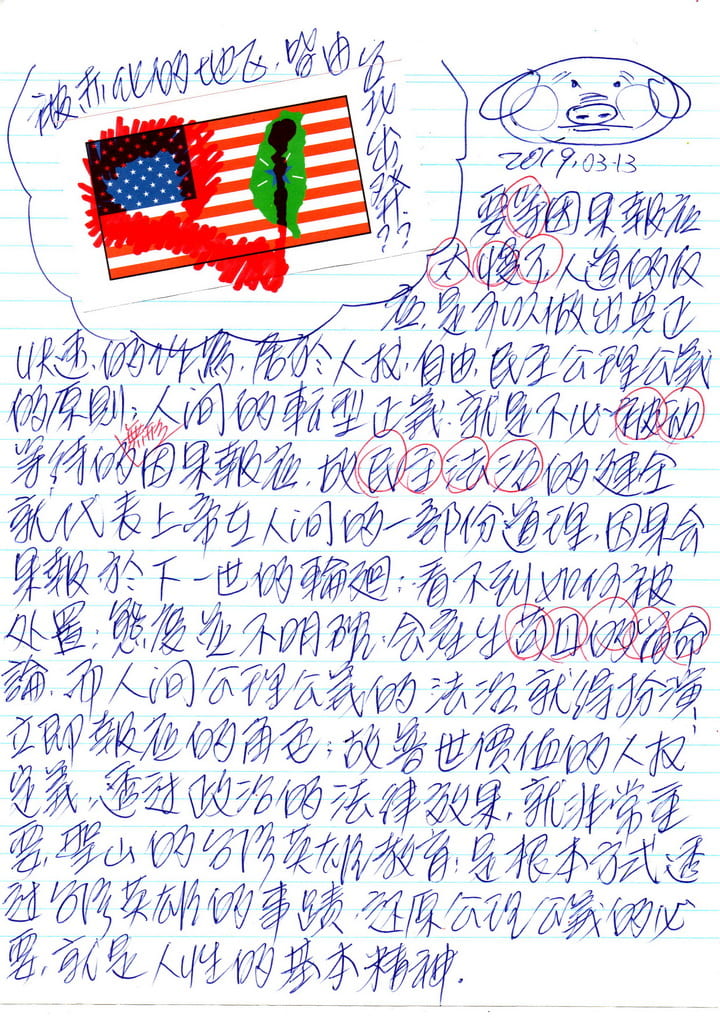 被赤化的地區,皆由
台北出發??
2019.03.13
要等因果報應
太慢了,人道的仅
應,是可以做出真正
快速,的作為,居於人权,自由,民主公理公義
的原則;人间的転型正義,就是不必被动
等待的無形因果報应,故民主法治的健全
就代表上帝在人间的一部份道理,因果会
果報於下一世的輪廻;看不到如何被
处置;態度並不明確;会產生盲目的宿命
論,而人间公理公義的法治,就得扮演
立即報应的角色;故普世價值的人权
定義,透过政治的法律效果,就非常重
要,聖山的台湾英雄教育;是根本方式,透
过台湾英雄的事蹟,还原公理公義的必
要,就是人性的基本精神.